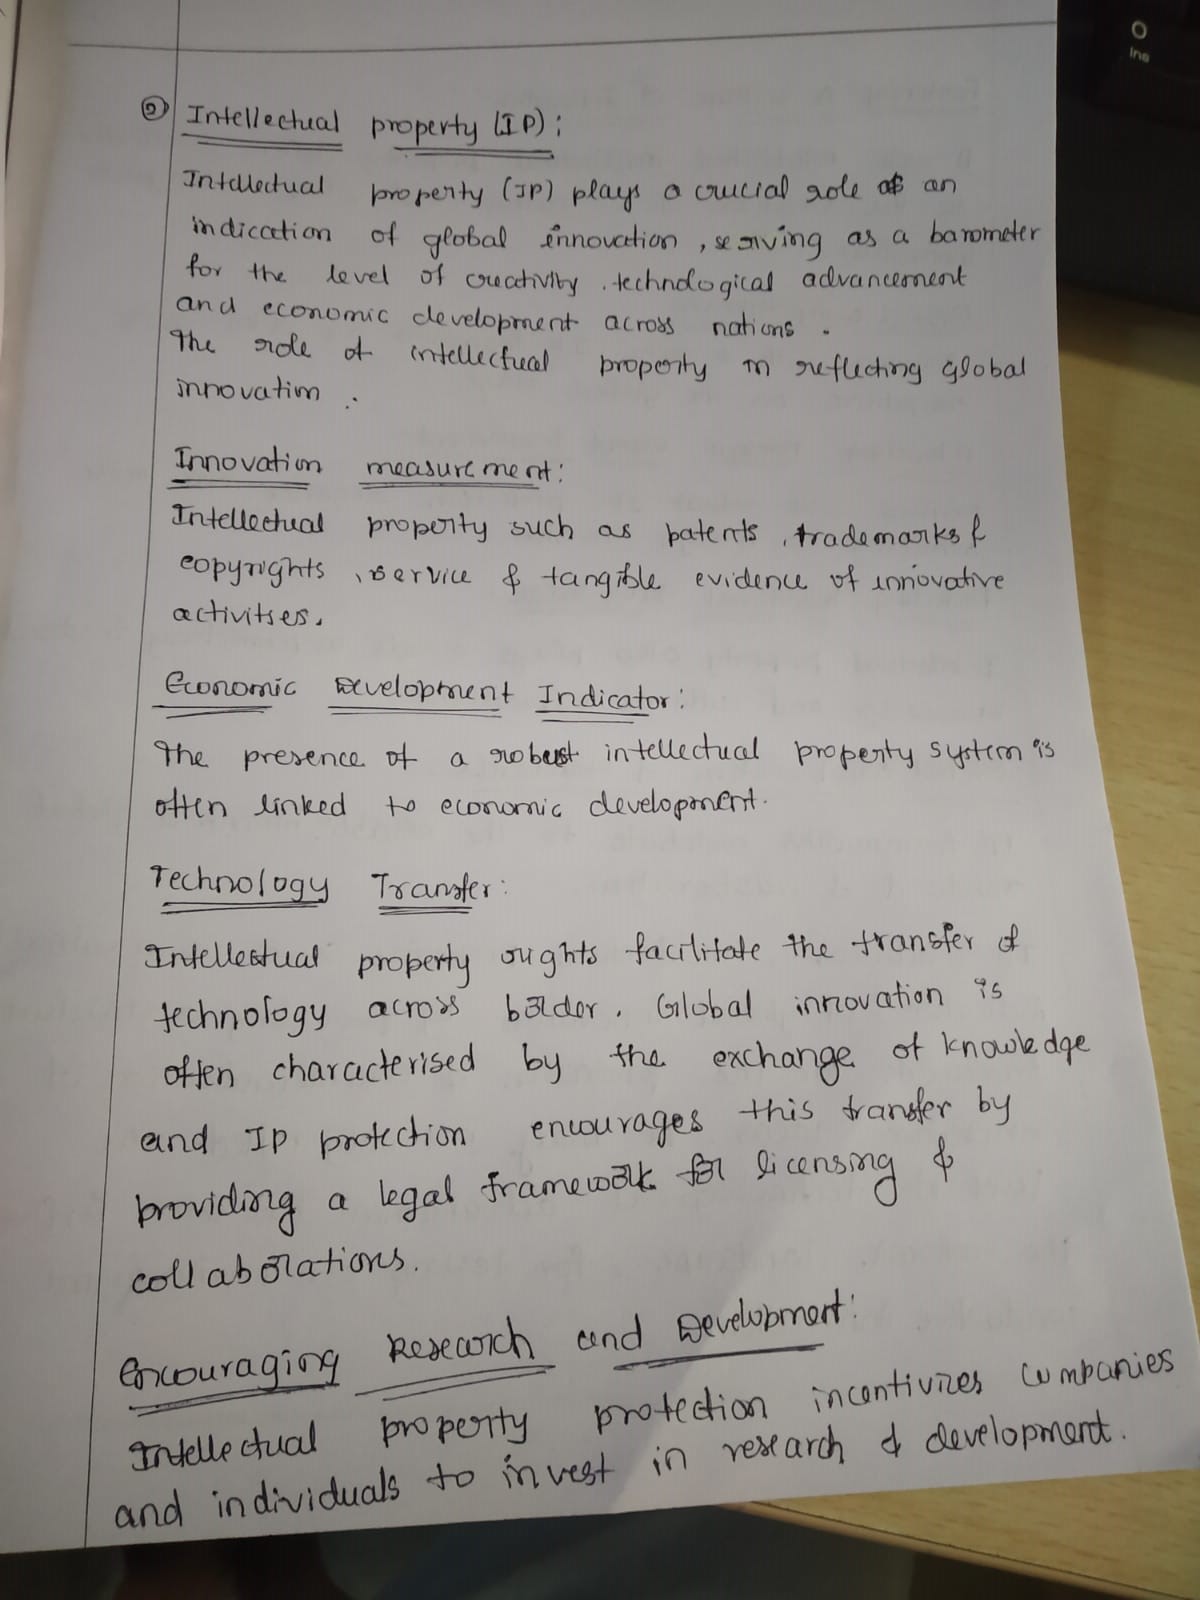 ② Intellectual property (IP):
Intellectual property (IP) plays a crucial role as an
indication of global innovation, serving as a barometer
for the level of creativity, technological advancement
and economic development across nations.
The role of intellectual property in reflecting global
innovation :
Innovation measurement:
Intellectual property such as patents, trademarks &
copyrights, service & tangible evidence of innovative
activitses.
Economic Development Indicator:
The presence of a robust intellectual property system is
often linked to economic development.
Technology Transfer:
Intellectual property rights facilitate the transfer of
technology across border. Global innovation is
often characterised by the exchange of knowledge
and IP protection encourages this transfer by
providing a legal framework for licensing &
collaborations.
Encouraging Research and Development:
Intellectual property protection incentivizes companies
and individuals to invest in research & development.
Ins